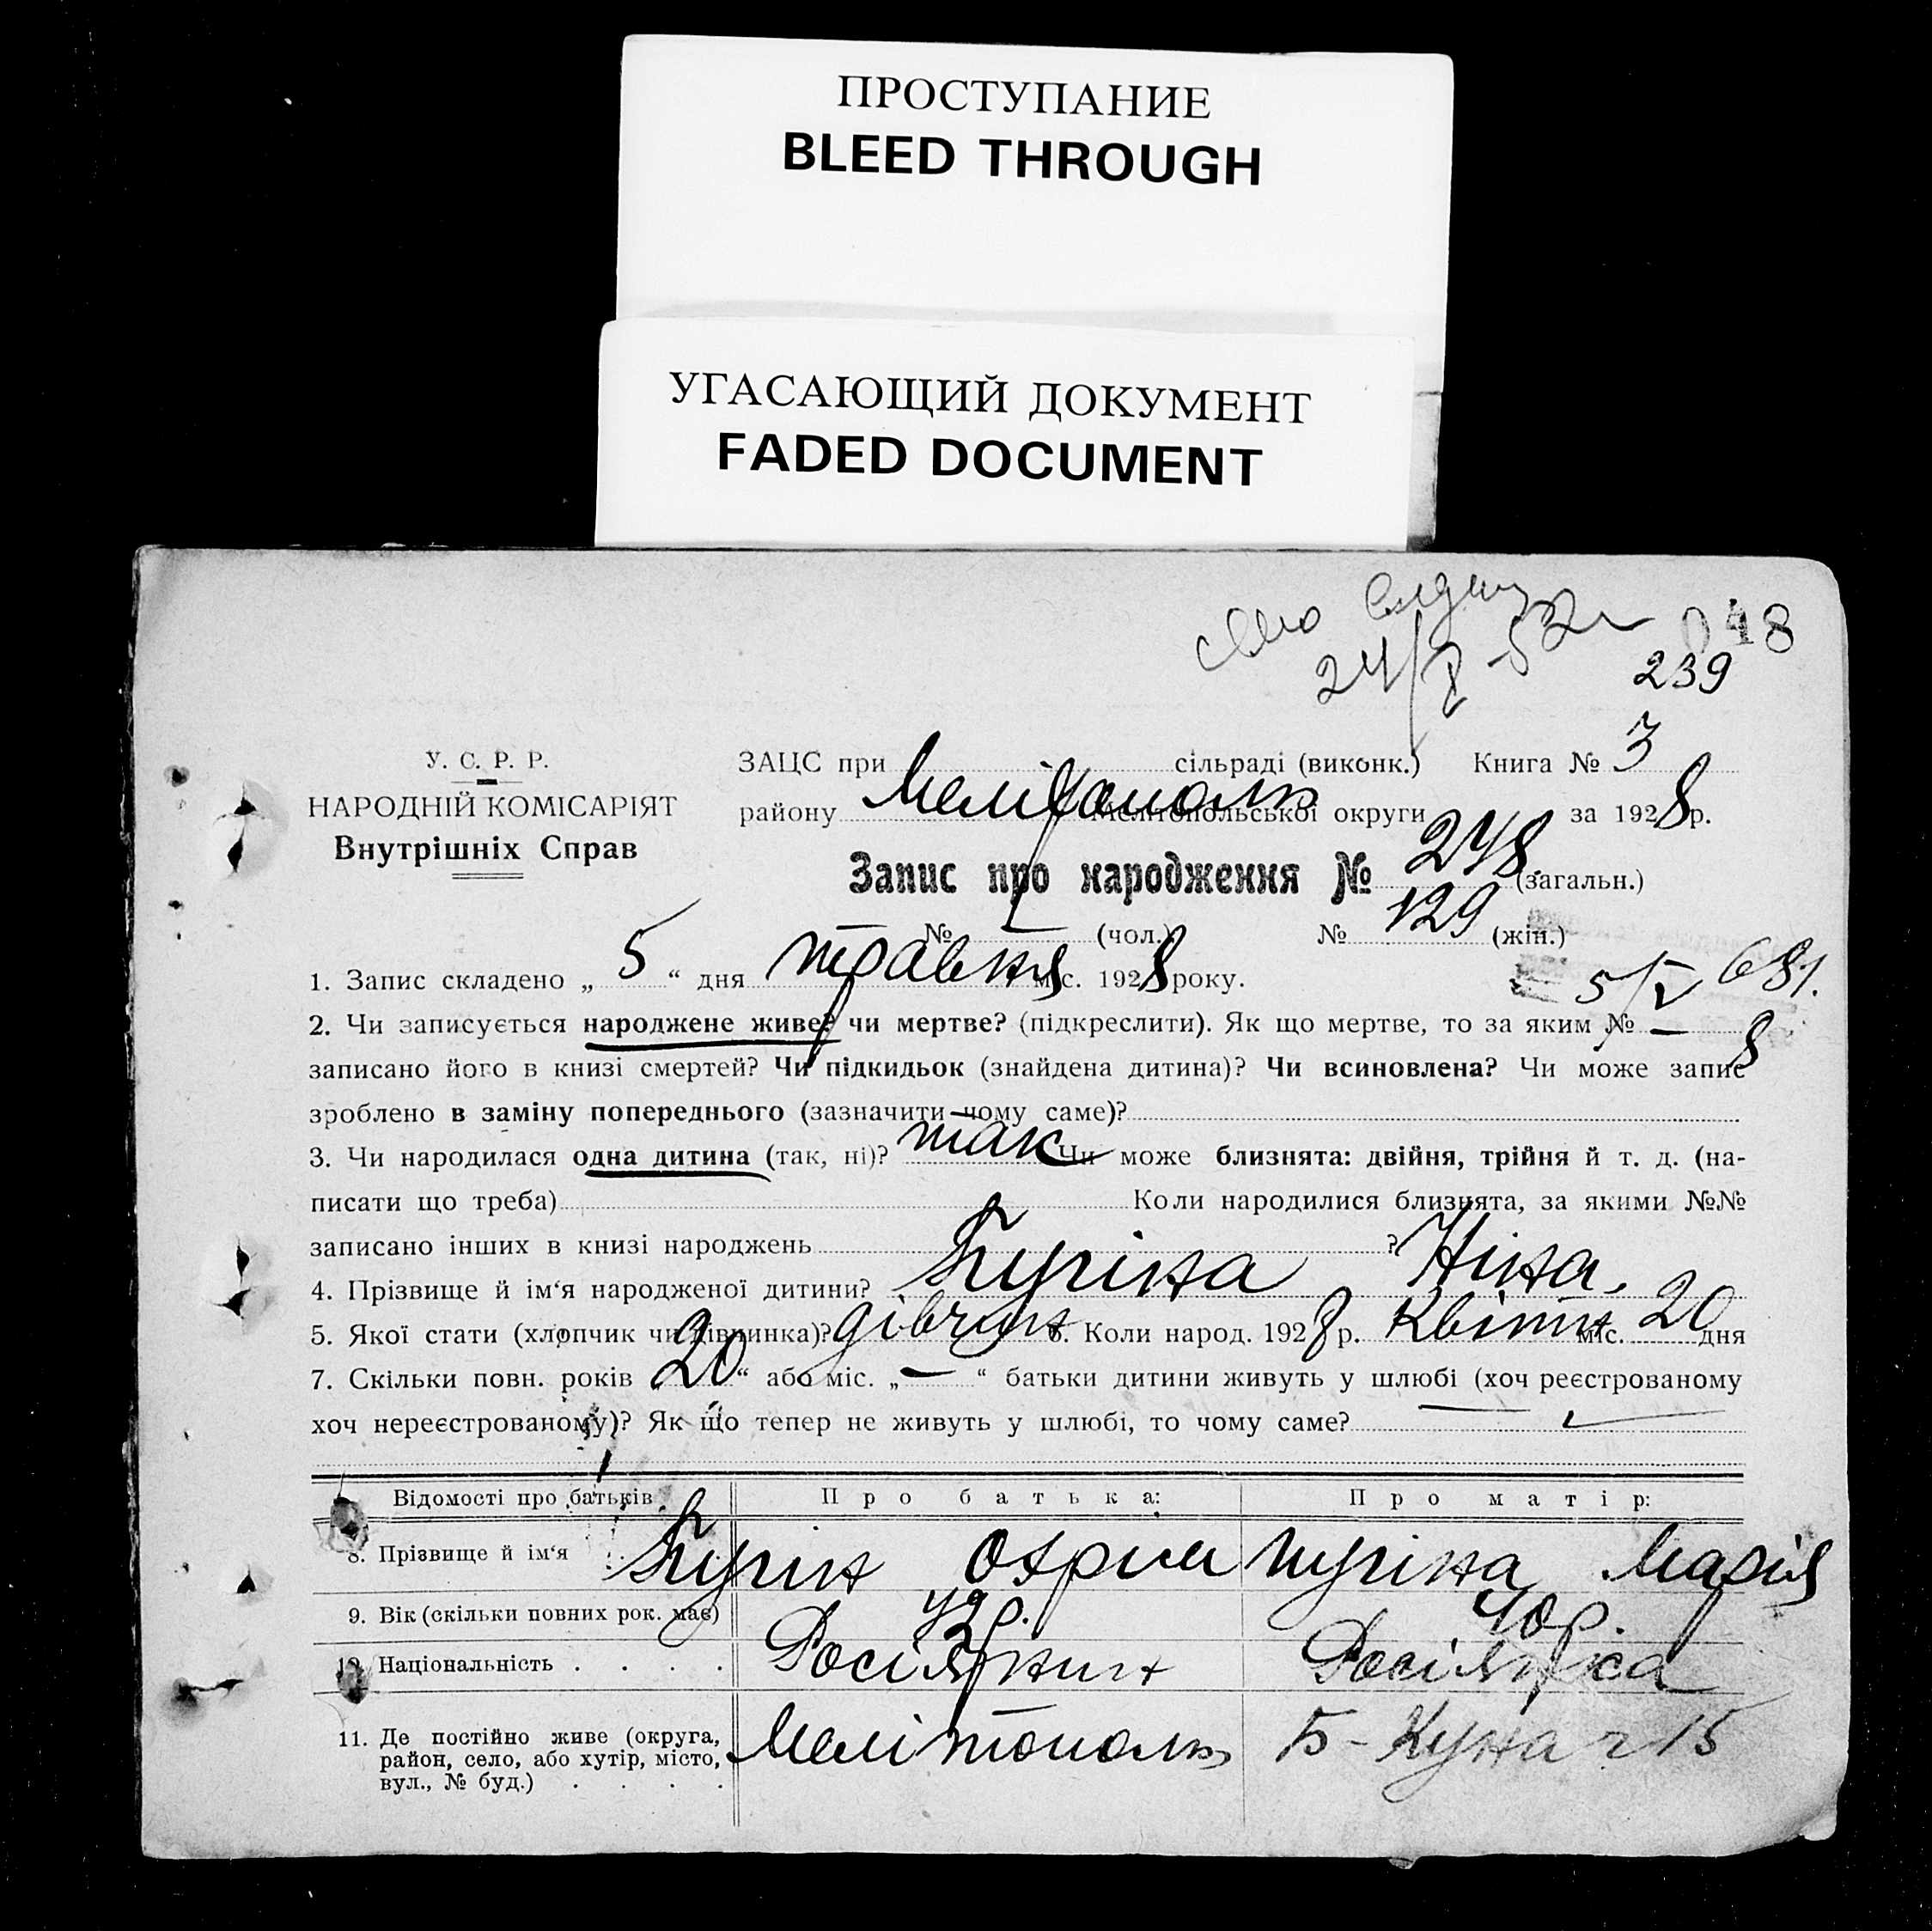 ПРОСТУПАНИЕ
BLEED THROUGH
УГАСАЮЩИЙ ДОКУМЕНТ
FADED DOCUMENT
048
24/X-52
239
У. С. Р. Р.
НАРОДНІЙ КОМІСАРІЯТ
Внутрішніх Справ
ЗАЦС при сільраді (виконк.) Книга № 3
району Мелітополь Мелітопольської округи за 1928 р.
Запис про народження № 248 (загальн.)
№ — (чол.) № 129 (жін.)
5/V 681.
1. Запис складено „ 5 “ дня травня міс. 1928 року.
2. Чи записується народжене живе? чи мертве? (підкреслити). Як що мертве, то за яким № —
записано його в книзі смертей? Чи підкидьок (знайдена дитина)? Чи всиновлена? Чи може запис
зроблено в заміну попереднього (зазначити чому саме)?
3. Чи народилася одна дитина (так, ні)? так Чи може близнята: двійня, трійня й т. д. (на-
писати що треба) Коли народилися близнята, за якими №№
записано інших в книзі народжень ?
4. Прізвище й ім‘я народженої дитини? Ніна.
5. Якої стати (хлопчик чи дівчинка)? дівчин 6. Коли народ. 1928 р. Квітн міс. 20 дня
7. Скільки повн. років „ 20 “ або міс. „ — “ батьки дитини живуть у шлюбі (хоч реєстрованому
хоч нереєстрованому)? Як що тепер не живуть у шлюбі, то чому саме?
Відомості про батьків Про батька: Про матір:
8. Прізвище й ім‘я Марія
9. Вік (скільки повних рок. має) 42 р. 40 р.
10. Національність . . . . Росіянин Росіянка
11. Де постійно живе (округа, район, село, або хутір, місто, вул., № буд.) . . . . Мелітополь Б-Куна 15